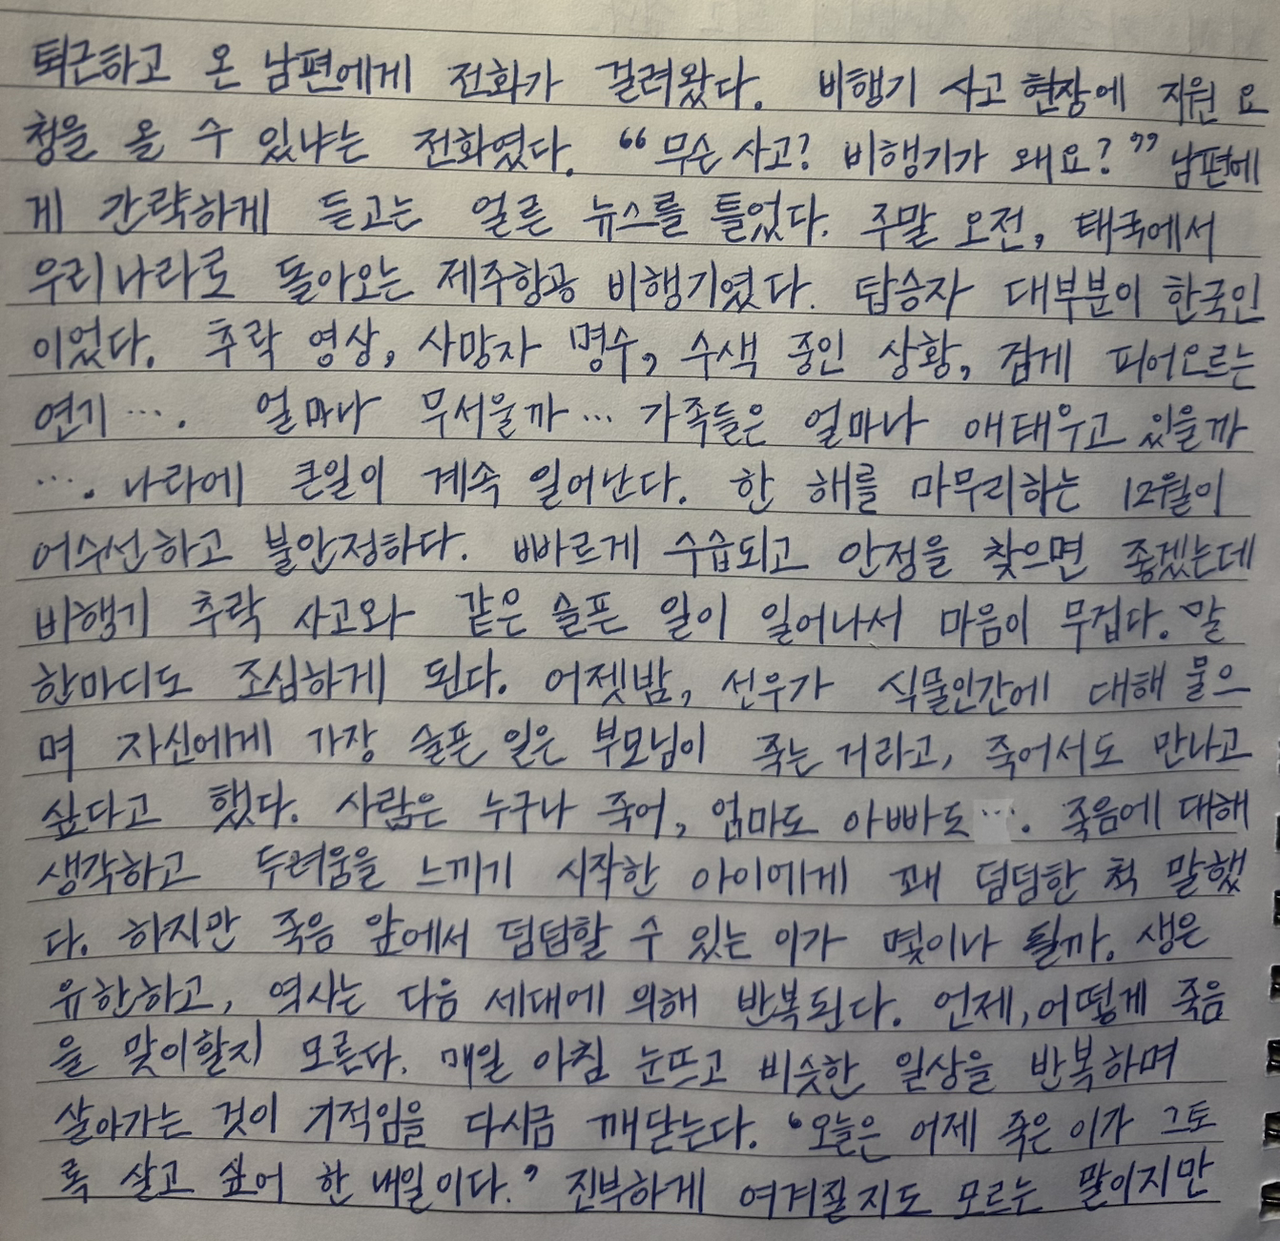 퇴근하고 온 남편에게 전화가 걸려왔다. 비행기 사고 현장에 지원 요
청을 올 수 있냐는 전화였다. "무슨 사고? 비행기가 왜요?" 남편에
게 간략하게 듣고는 얼른 뉴스를 틀었다. 주말 오전, 태국에서
우리나라로 돌아오는 제주항공 비행기였다. 탑승자 대부분이 한국인
이었다. 추락 영상, 사망자 명수, 수색 중인 상황, 검게 피어오르는
연기 …. 얼마나 무서울까 … 가족들은 얼마나 애태우고 있을까
…. 나라에 큰일이 계속 일어난다. 한 해를 마무리하는 12월이
어수선하고 불안정하다. 빠르게 수습되고 안정을 찾으면 좋겠는데
비행기 추락 사고와 같은 슬픈 일이 일어나서 마음이 무겁다. 말
한마디도 조심하게 된다. 어젯밤, 선우가 식물인간에 대해 물으
며 자신에게 가장 슬픈 일은 부모님이 죽는 거라고, 죽어서도 만나고
싶다고 했다. 사람은 누구나 죽어, 엄마도 아빠도 …. 죽음에 대해
생각하고 두려움을 느끼기 시작한 아이에게 꽤 덤덤한 척 말했
다. 하지만 죽음 앞에서 덤덤할 수 있는 이가 몇이나 될까. 생은
유한하고, 역사는 다음 세대에 의해 반복된다. 언제, 어떻게 죽음
을 맞이할지 모른다. 매일 아침 눈뜨고 비슷한 일상을 반복하며
살아가는 것이 기적임을 다시금 깨닫는다. '오늘은 어제 죽은 이가 그토
록 살고 싶어 한 내일이다.' 진부하게 여겨질지도 모르는 말이지만